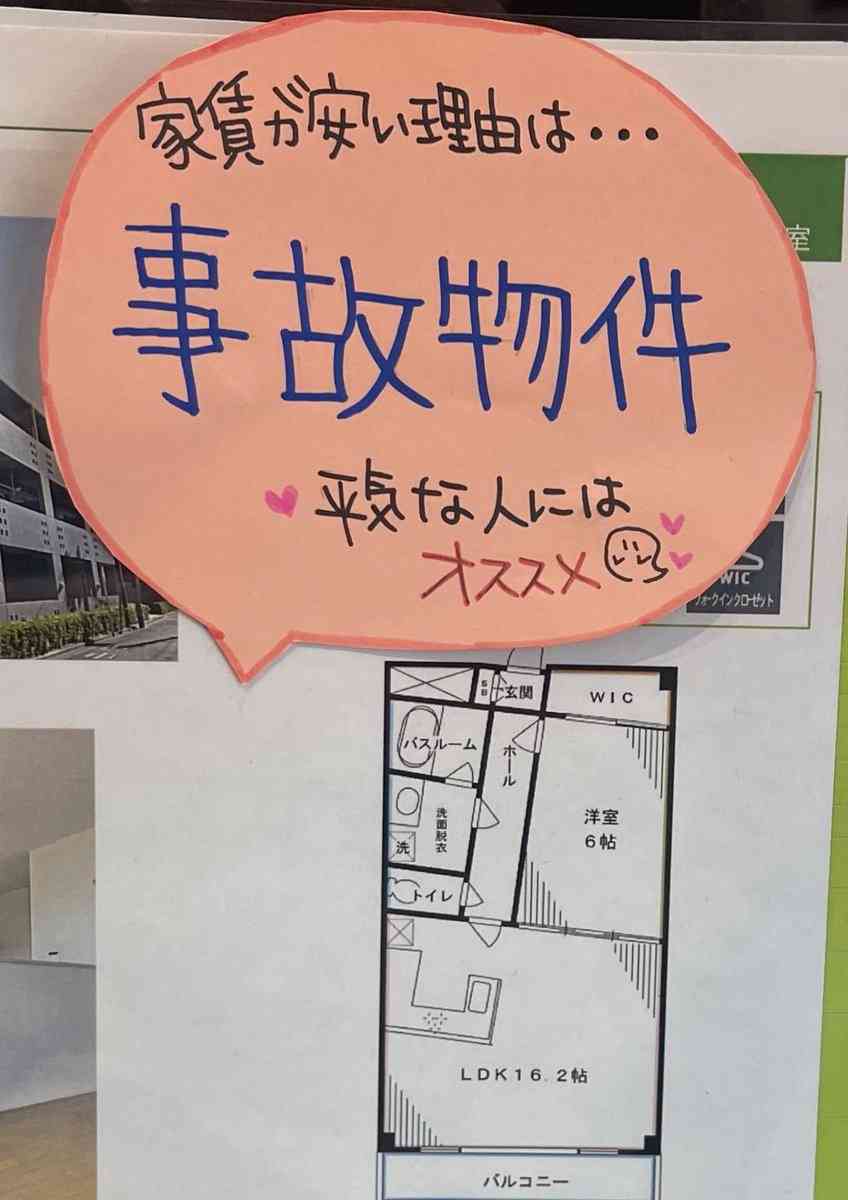 家賃が安い理由は・・・
事故物件
平気な人には
オススメ
室
WIC
ウォークインクローゼット
SB
玄関
WIC
バスルーム
ホール
洗面脱衣
洗
洋室
6帖
トイレ
LDK16.2帖
バルコニー